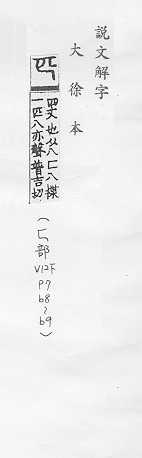 說文解字
大徐本
匹
四丈也从八匸八揲
一匹八亦聲普吉切
(匸部
V12下
P7
b8
~
b9)